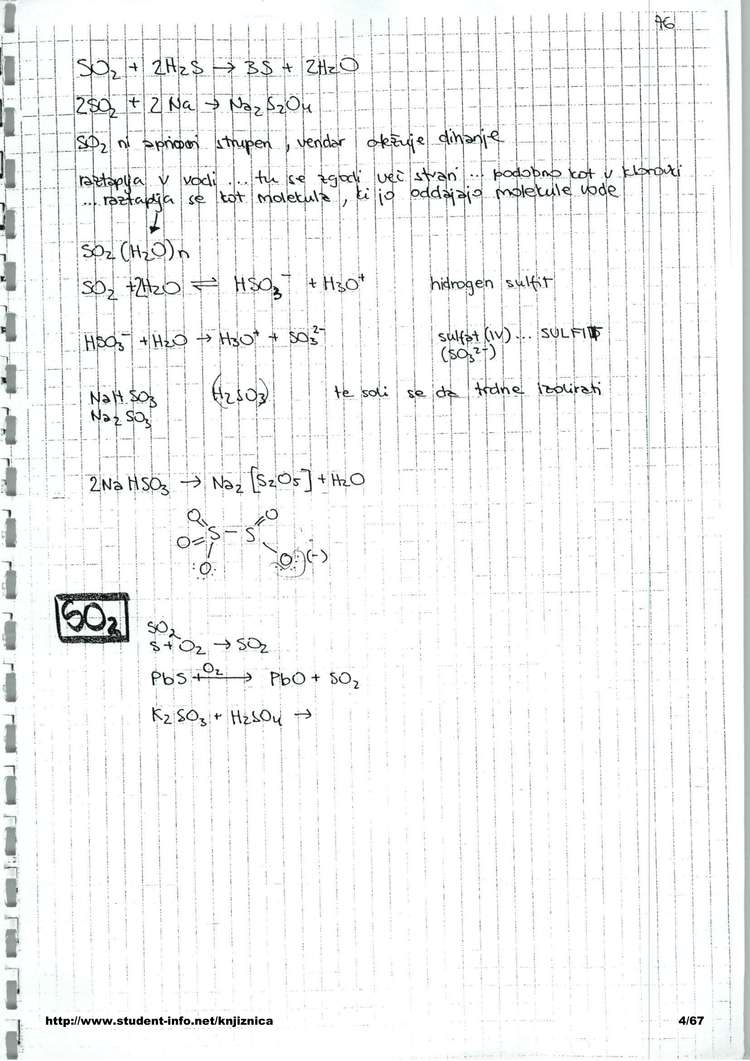 76
SO₂ + 2H₂S → 3S + 2H₂O
2SO₂ + 2Na → Na₂S₂O₄
SO₂ ni apriori strupen, vendar otežuje dihanje
raztaplja v vodi ... tu se zgodi več stvari ... podobno kot v klorovici
... raztaplja se kot molekula, ki jo oddajajo molekule vode
SO₂(H₂O)n
SO₂ + 2H₂O ⇌ HSO₃⁻ + H₃O⁺ hidrogen sulfit
HSO₃⁻ + H₂O → H₃O⁺ + SO₃²⁻ sulfat (IV) ... SULFIT
(SO₃²⁻)
NaHSO₃ (H₂SO₃) te soli se da trdne izolirati
Na₂SO₃
2NaHSO₃ → Na₂[S₂O₅] + H₂O
O O
O=S–S
O O (-)
SO₂
SO₂
S + O₂ → SO₂
PbS + O₂ → PbO + SO₂
K₂SO₃ + H₂SO₄ →
http://www.student-info.net/knjiznica 4/67